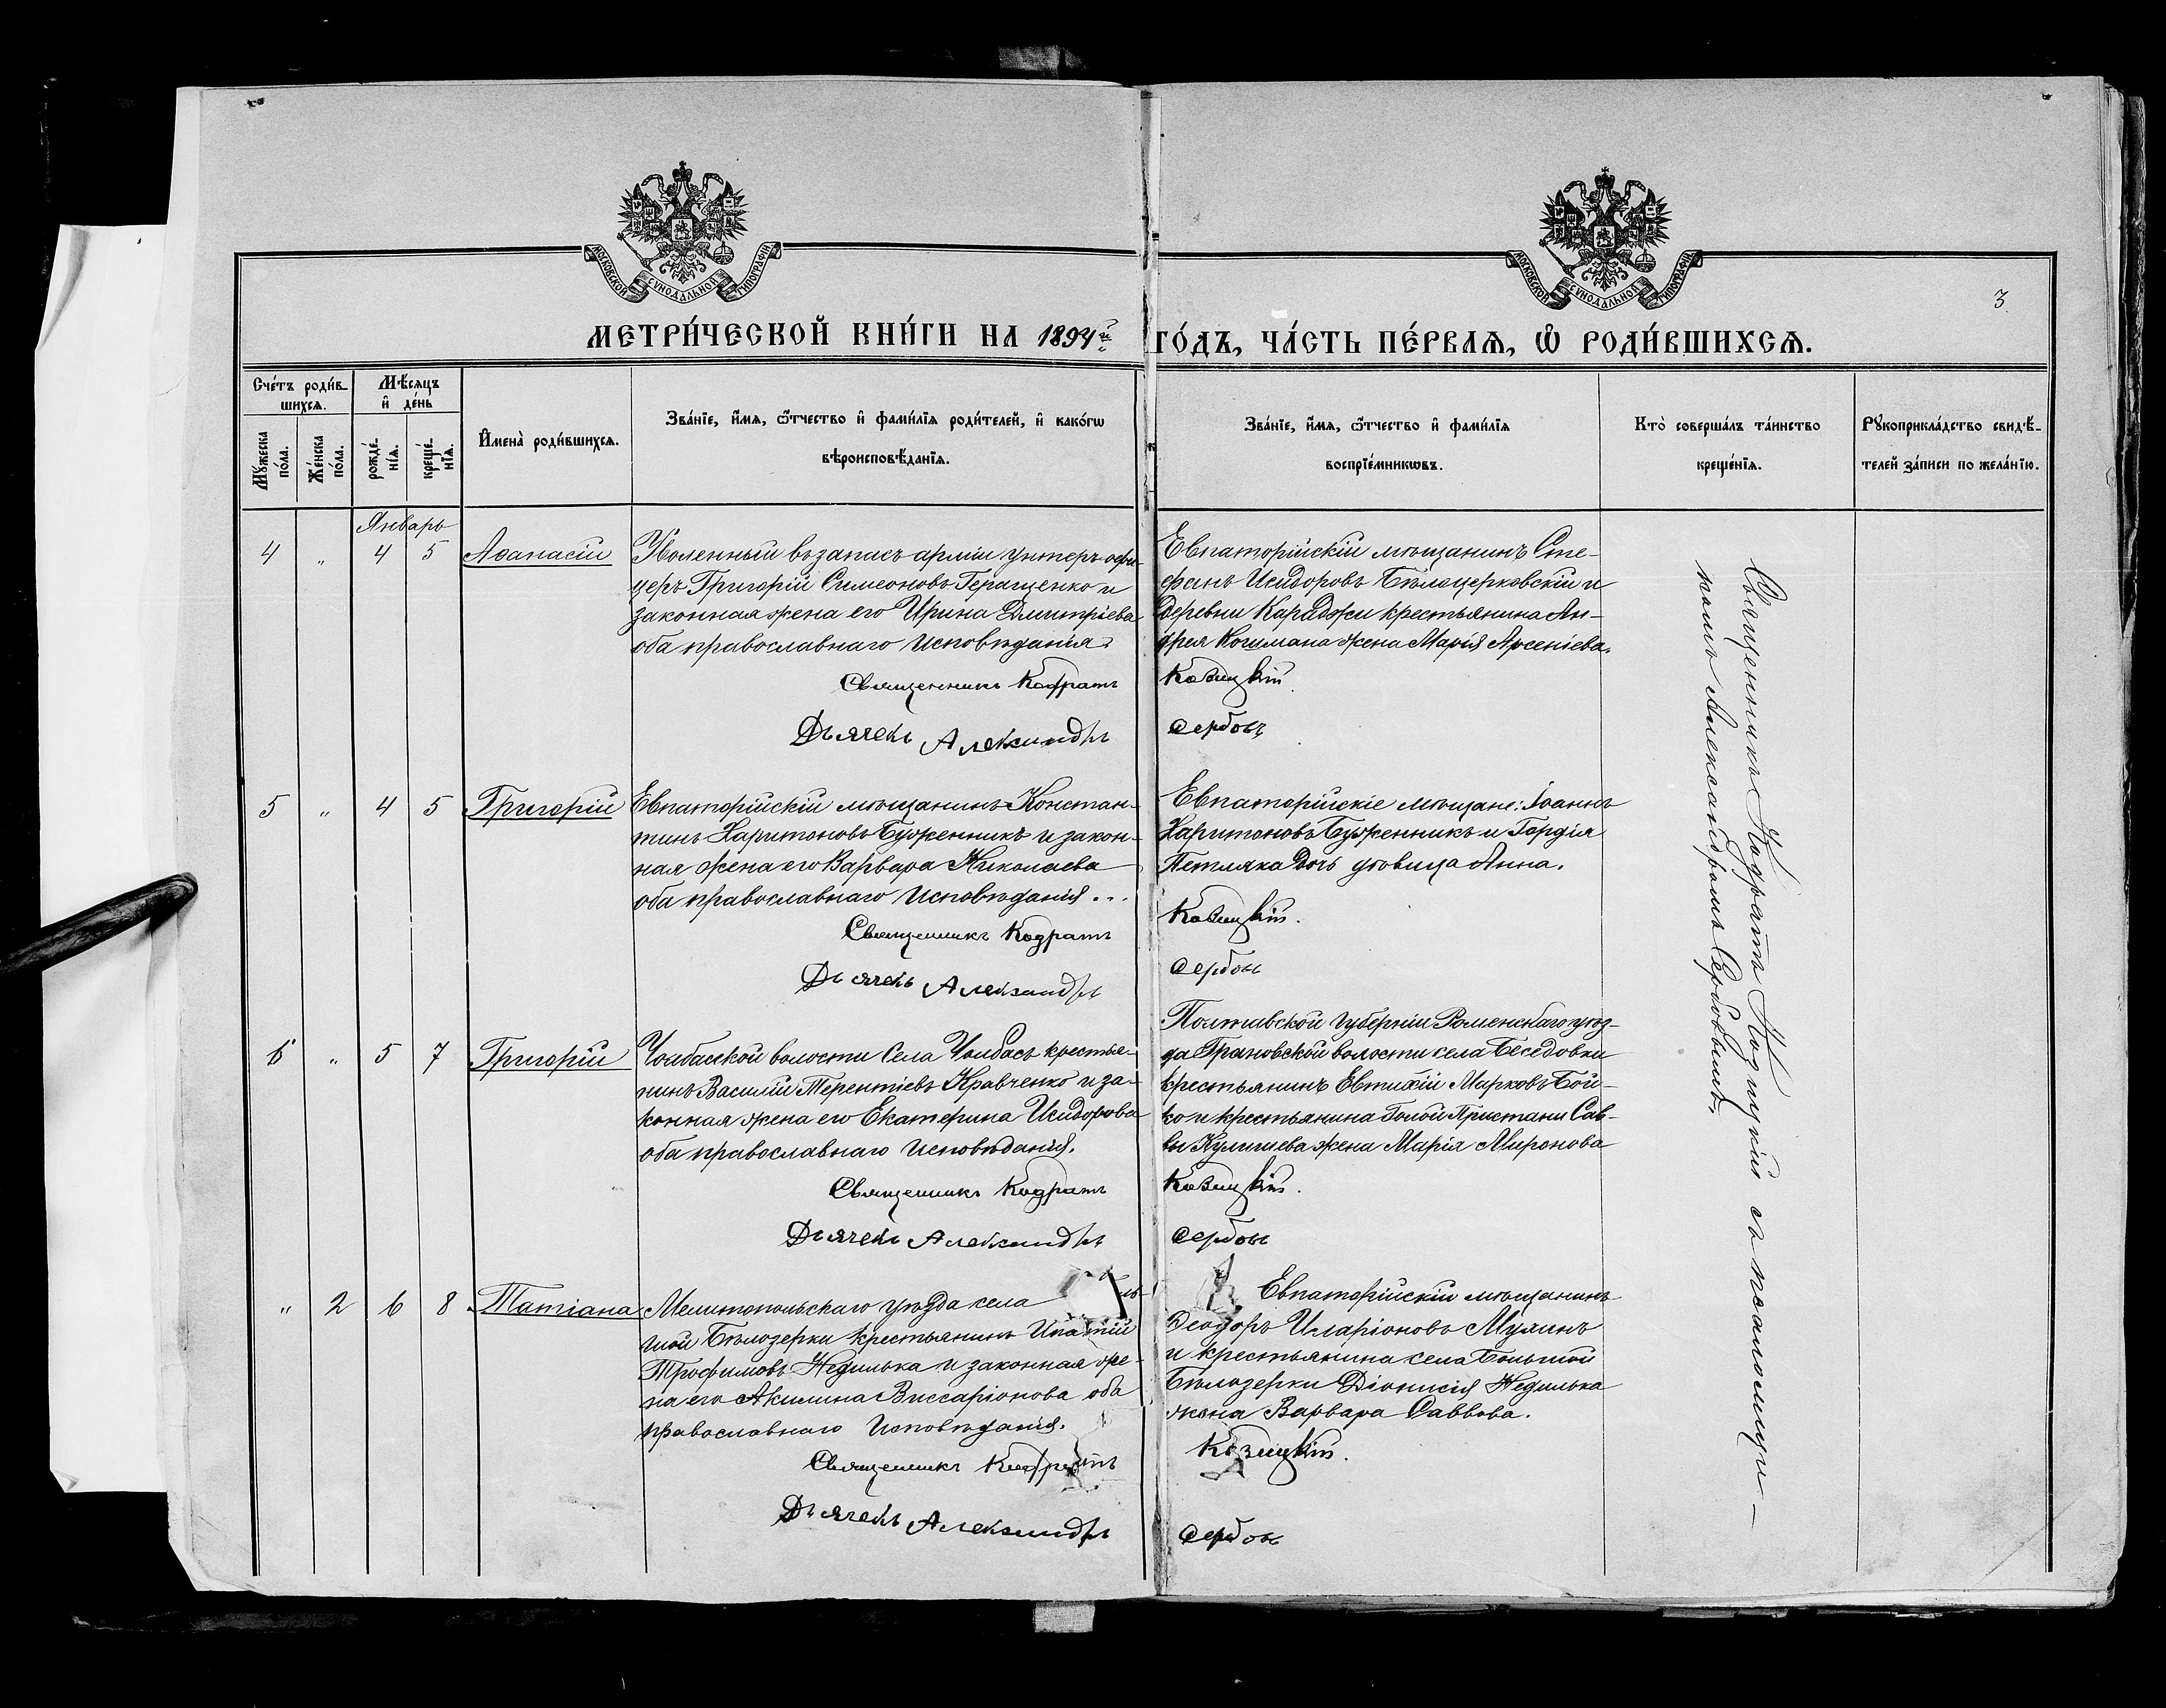 МОСКОВСКОЙ СѴНОДАЛЬНОЙ ТИПОГРАФІИ
МОСКОВСКОЙ СѴНОДАЛЬНОЙ ТИПОГРАФІИ
3
МЕТРИ́ЧЕСКОЙ КНИ́ГИ НА 1894й ГО́ДЪ, ЧА́СТЬ ПЕ́РВАѦ, Ѽ РОДИ́ВШИХСѦ.
Сче́тъ роди́в-
шихсѧ.
Мꙋ́жеска
по́ла.
Же́нска
по́ла.
Мѣ́сѧцъ
и҆ де́нь
рожде́-
нїѧ.
креще́-
нїѧ.
И҆мена̀ роди́вшихсѧ.
Зва́нїе, и҆́мѧ, ѻ҆́тчество и҆ фами́лїѧ роди́телей, и҆ како́гѡ
вѣроисповѣ́данїѧ.
Зва́нїе, и҆́мѧ, ѻ҆́тчество и҆ фами́лїѧ
воспрїе́мникѡвъ.
Кто̀ соверша́лъ та́инство
креще́нїѧ.
Рꙋкоприкла́дство свидѣ́-
телей за́писи по жела́нїю.
Январь
4 " 4 5 Аѳанасій
Уволенный въ запасъ арміи унтеръ-офи-
церъ Григорій Симеоновъ Геращенко и
законная жена его Ирина Дмитріева
оба православнаго исповѣданія.
Священникъ Кодратъ
Дьячекъ Александръ
Евпаторійскій мѣщанинъ Сте-
фанъ Исидоровъ Бѣлоцерковскій и
деревни Караджи крестьянина Ан-
дрея Когмана жена Марія Арсеніева.
Козицкій
Сербовъ
5 " 4 5 Григорій
Евпаторійскій мѣщанинъ Констан-
тинъ Харитоновъ Буженникъ и закон-
ная жена его Варвара Николаева
оба православнаго исповѣданія...
Священникъ Кодратъ
Дьячекъ Александръ
Евпаторійскіе мѣщане: Іоаннъ
Харитоновъ Буженникъ и Гордія
Петляка дочь дѣвица Анна.
Козицкій.
Сербовъ
6 " 5 7 Григорій
Чолбасской волости села Чолбасъ крестья-
нинъ Василій Терентіевъ Кравченко и за-
конная жена его Екатерина Исидорова
оба православнаго исповѣданія.
Священникъ Кодратъ
Дьячекъ Александръ
Полтавской губерніи Роменскаго уѣз-
да Грановской волости села Беседовки
крестьянинъ Евтихій Марковъ Бой-
ко и крестьянина Голой Пристани Сав-
вы Кулишева жена Марія Миронова
Козицкій.
Сербовъ
" 2 6 8 Татіана
Мелитопольскаго уѣзда села
шой Бѣлозерки крестьянинъ Ипатій
Трофимовъ Недилька и законная же-
на его Акилина Виссаріонова оба
православнаго исповѣданія.
Священникъ Кодратъ
Дьячекъ Александръ
Евпаторійскій мѣщанинъ
Ѳеодоръ Иларіоновъ Мухинъ
и крестьянина села Большой
Бѣлозерки Діонисія Недилька
жена Варвара Саввова.
Козицкій.
Сербовъ
Священникъ Кодратъ Козицкій съ псаломщи-
комъ Александромъ Сербовымъ.